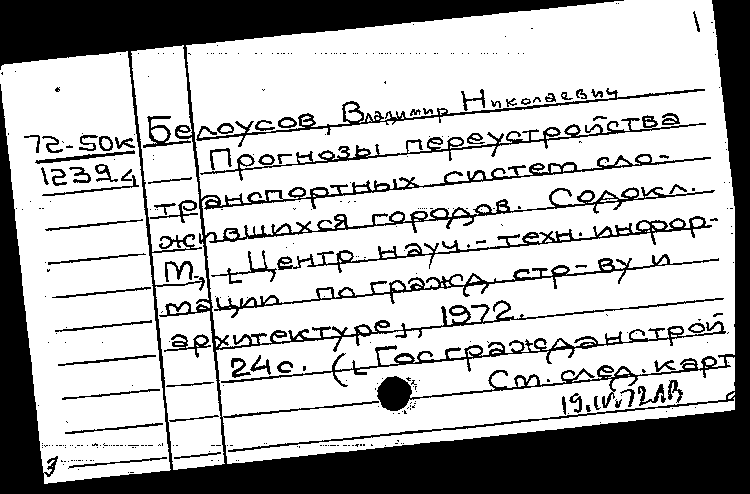 1
Белоусов, Владимир Николаевич
72-50к
1239.4
Прогнозы переустройства
транспортных систем сло-
жившихся городов. Содокл.
М., [Центр науч.-техн. инфор-
мации по гражд. стр-ву и
архитектуре], 1972.
24с. ([Госгражданстрой
См. след. карт
19.IV.72
3